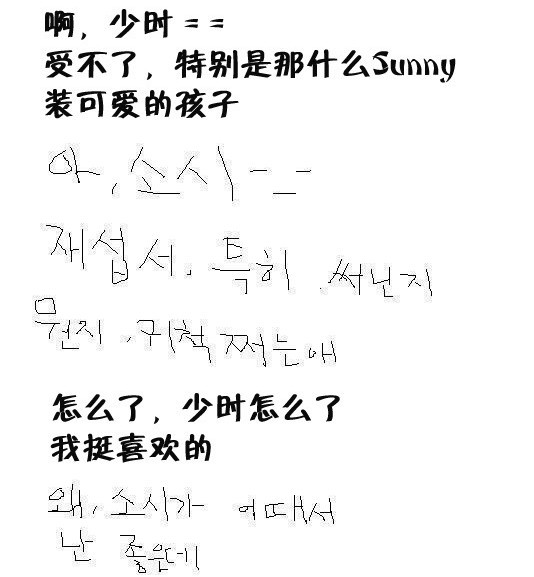 啊，少时 = =
受不了，特别是那什么Sunny
装可爱的孩子
아, 소시 - _ -
재섭서, 특히 써닌지
뭔지, 귀척 쩌는애
怎么了，少时怎么了
我挺喜欢的
왜, 소시가 어때서
난 좋은데